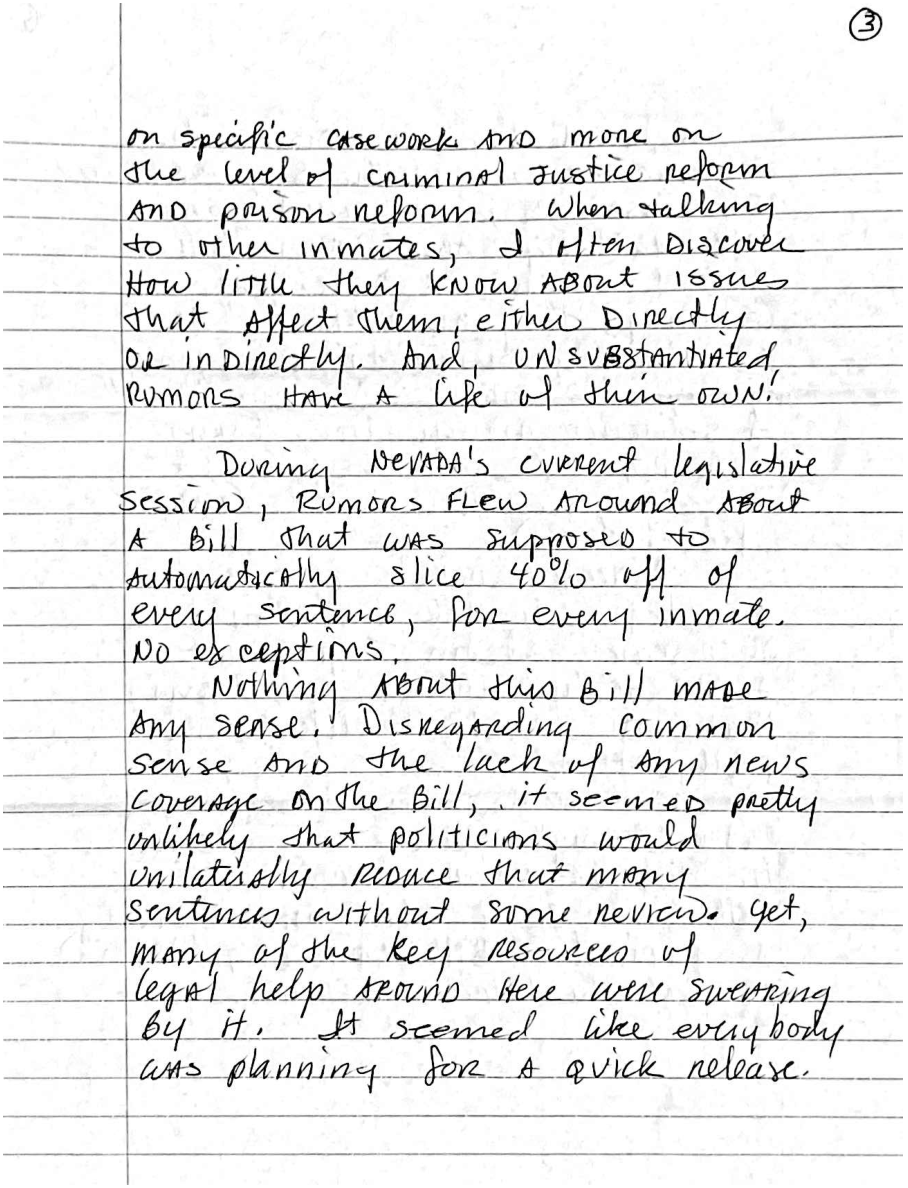 3
on specific casework AND more on
the level of criminal Justice reform
AND prison reform. When talking
to other inmates, I often Discover
How little they KNOW ABout issues
that Affect them, either Directly
OR inDirectly. And, UNSUBStANtiAted,
RUMORS HAVE A life of their OWN!
During NeVADA's current legislative
Session, RUMORS FLEW AROUND ABOUT
A Bill that WAS Supposed to
Automatically slice 40% off of
every sentence, for every inmate.
No exceptions.
Nothing ABOUT this Bill MADE
Any sense. Disregarding common
sense AND the lack of Any news
coverage on the Bill, it seemed pretty
unlikely that politicians would
unilaterally Reduce that many
sentences without some review. Yet,
MANY of the key Resources of
legal help AROUND Here were swearing
By it. It seemed like everybody
was planning for A quick release.